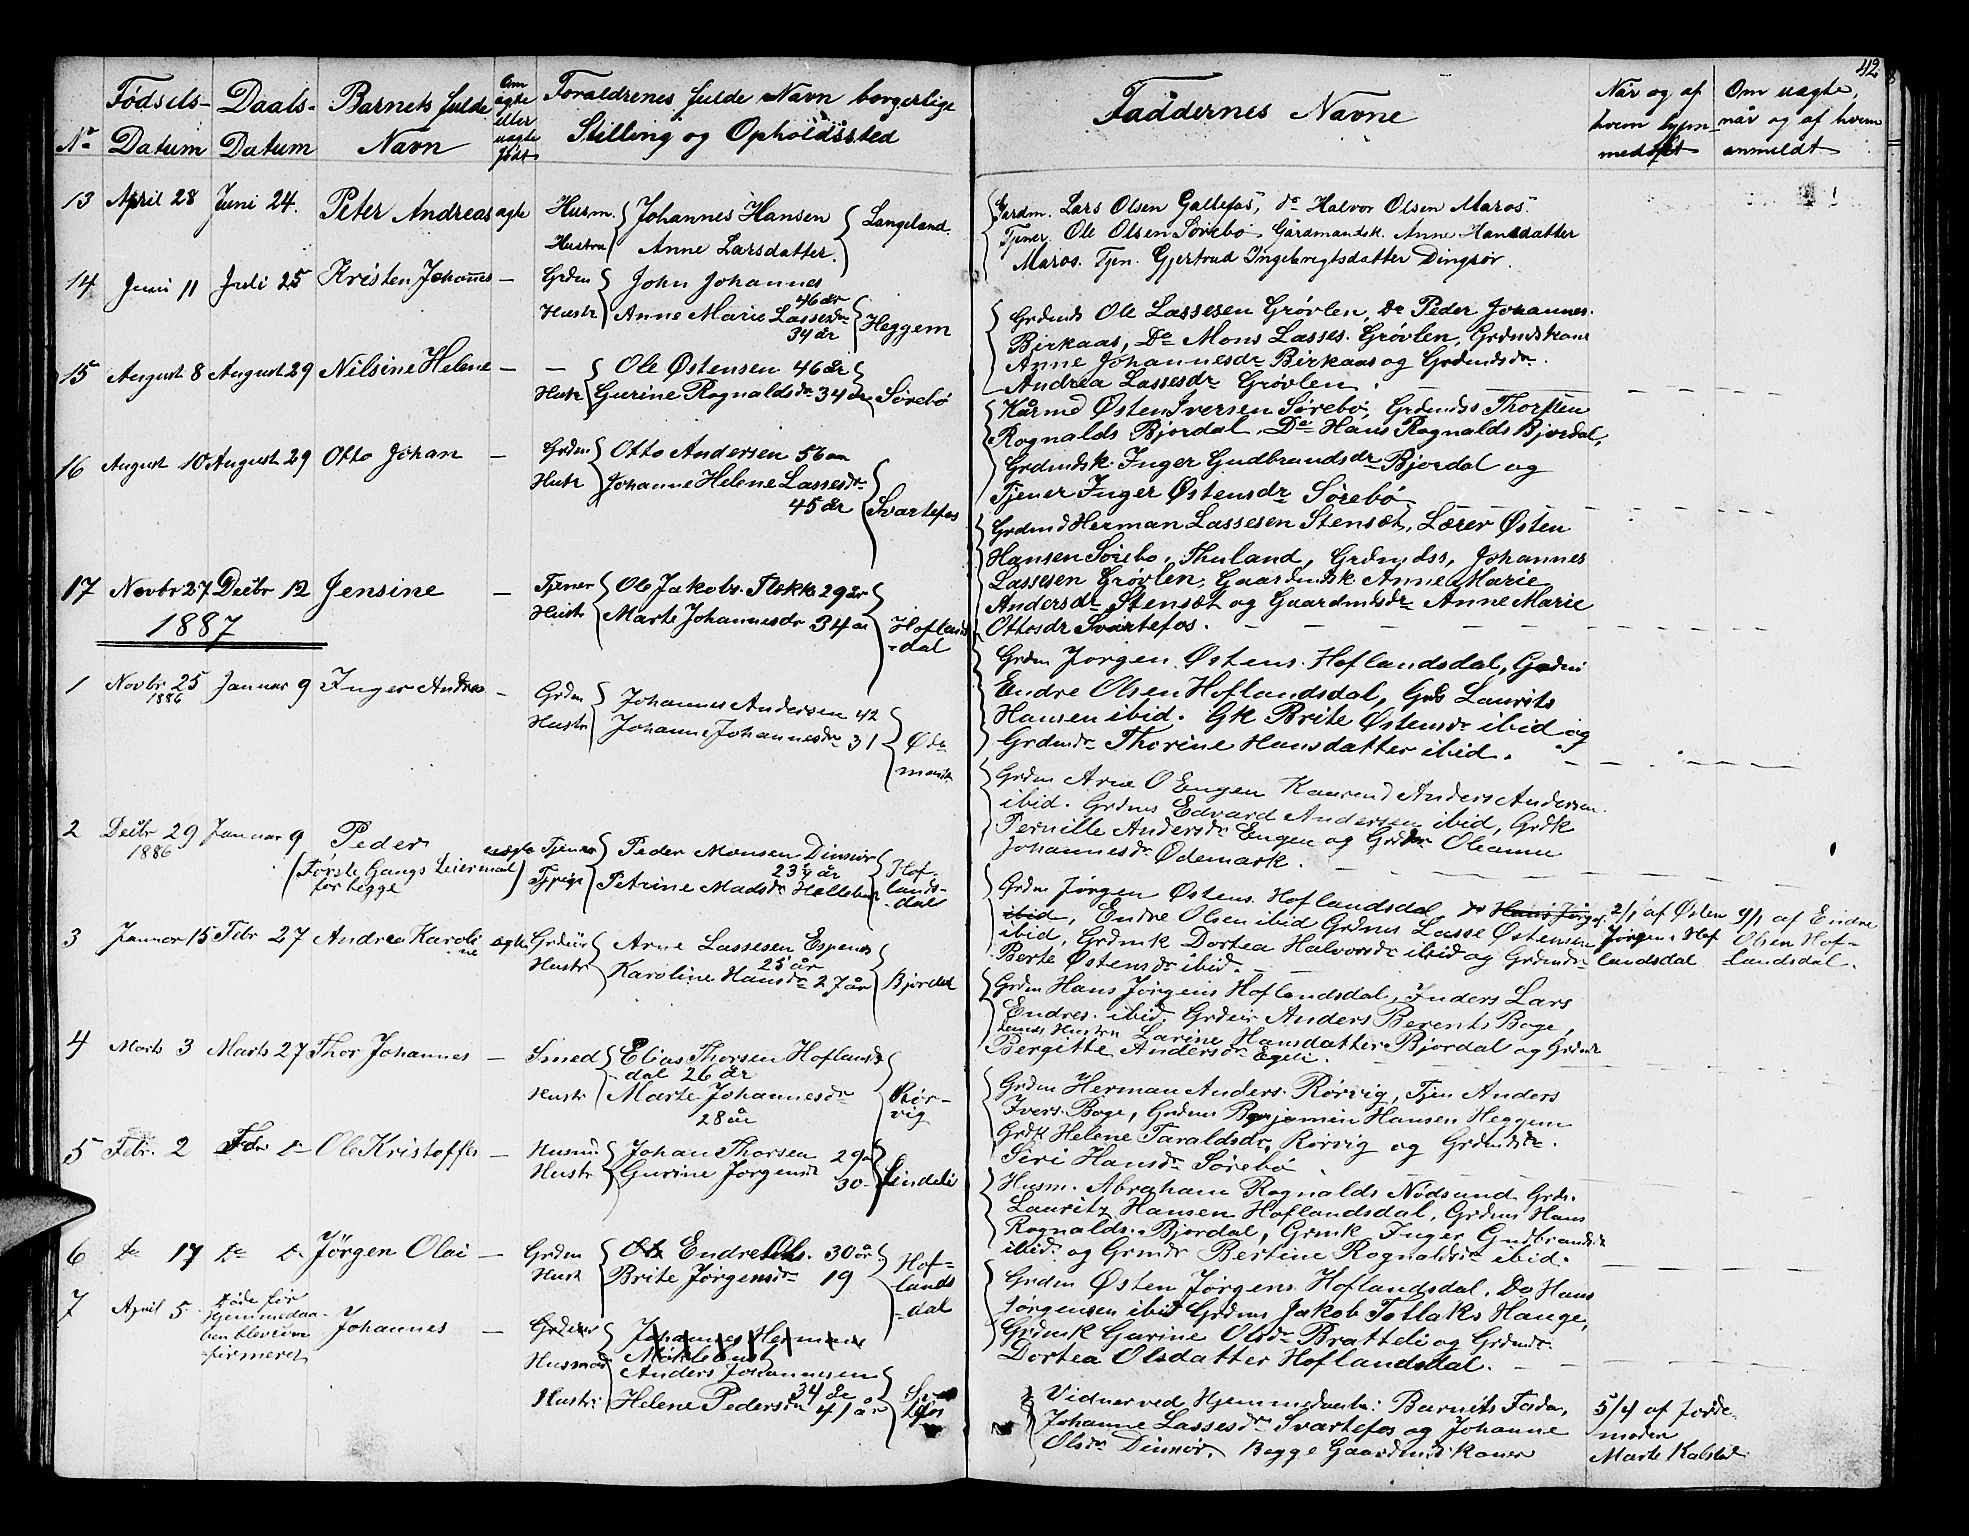 42
No
Fødsels-
Datum
Daabs-
Datum
Barnets fulde
Navn
Om
ægte
eller
uægte
født
Forældrenes fulde Navn borgerlige
Stilling og Opholdssted
Faddernes Navne
Når og af
hvem hjem-
medøbt
Om uægte,
når og af hvem
anmeldt
13 April 28 Juni 24. Peter Andreas ægte Husm. Johannes Hansen
Hustru Anne Larsdatter. Langeland.
Gardm. Lars Olsen Gallefos, do Halvor Olsen Maros.
Tjener Ole Olsen Sørebø Gårdmandsk. Anne Hansdatter
Maros. Tjen. Gjertrud Ingebrigtsdatter Dingsør.
14 Juni 11 Juli 25 Kristen Johannes — Grdm John Johannes
46 år
Hustr Anne Marie Lassesdr
34 år Heggem
Grdmds Ole Lassesen Grøvlen, Do Peder Johannes.
Birkaas, Do Mons Lasses. Grøvlen, Grdmdskone
Anne Johannesdr Birkaas og Grdmdsdr.
Andrea Lassesdr Grøvlen.
15 August 8 August 29 Nilsine Helene — — Ole Østensen 46 år
Hustr Gurine Rognaldsdr 34 år Sørebø
Kårmd Østen Iversen Sørebø, Grdmdss Thorsten
Rognalds Bjordal, Do Hans Rognalds Bjordal,
Grdmdsk. Inger Gudbrandsdr Bjordal og
Tjener Inger Østensdr Sørebø
16 August 10 August 29 Otto Johan — Grdm Otto Andersen 56 aar
Hustr Johanne Helene Lassesdr
45 år Svartefos
Grdmd Herman Lassesen Stensæt, Lærer Østen
Hansen Sørebo, Thuland, Grdmdss, Johannes
Lassesen Grøvlen, Gaardmdsk Anne Marie
Andersdr Stensæt og Gaardmdsdr Anne Marie
Ottosdr Svartefos.
17 Novbr 27 Decbr 12 Jensine — Tjener Ole Jakobs. Flekke 29 år
Hustr Marte Johannesdr 34 år Hoflands
-dal
Grdm Jørgen Østens. Hoflandsdal, Grdm
Endre Olsen Hoflandsdal, Grds Laurits
Hansen ibid. Gk Brite Østensdr ibid og
Grdmdr Thorine Hansdatter ibid.
1887
1 Novbr 25
1886
Januar 9 Inger Andrea — Grdm Johannes Andersen 42
Hustr Johanne Johannesdr 31 Øde
mark
Grdm Arne O Engen Kaarmd Anders Andersen
ibid. Grdms Edvard Andersen ibid, Grdk
Pernille Andersdr Engen og Grdmdr Oleanna
Johannesdr Ødemark.
2 Decbr 29
1886
Januar 9 Peder uægte Tjener Peder Monsen Dinsør
23½ år
(Første Gangs Leiermaal
for begge)
Tjpige Petrine Madsdr Hof-
lands-
dal
Grdm Jørgen Østens. Hoflandsdal, do Hans Jørgs.
ibid, Endre Olsen ibid Grdms Lasse Østensen
ibid, Grdmk Dortea Halvorsdr ibid og Grdmdr
Berte Østensdr ibid.
2/1 af Østen
Jørgens Hof
landsdal
9/1 af Endre
Olsen Hof-
landsdal.
3 Januar 15 Febr 27 Andrea Karoli
ne
ægte Grdeier Arne Lassesen Espenes
25 år
Hustr Karoline Hansdr 27 år Bjordal
Grdm Hans Jørgens Hoflandsdal, Inders Lars
Endres. ibid. Grdeier Anders Berents Boge,
dennes Hustru Larine Hansdatter Bjordal og Grdmdr
Bergitte Andersdr Egeli.
4 Marts 3 Marts 27 Thor Johannes — Smed Elias Thorsen Hoflands
-dal 26 år
Hustr Marte Johannesdr
28 år Rør-
vig
Grdm Herman Anders. Rørvig, Tjen Anders
Ivers. Boge, Grdms Benjamin Hansen Heggem
Grdk Helene Taraldsdr, Rørvig og Grdmdsdr.
Siri Hansdr Sørebo
5 Febr. 2 Febr do Ole Kristoffer — Husmd Johan Thorsen 29 år
Hustr Gurine Jørgensdr
30 Lindeli
Husm. Abraham Rognalds Nødsund Grds.
Lauritz Hansen Hoflandsdal, Grdms Hans
Rognalds. Bjordal, Grmk Inger Gudbrandsdr
ibid og Grmdr Bertine Rognaldsdr ibid.
6 do 17 do do Jørgen Olai — Grdm Endre Ols. 30 år
Hustr Brite Jørgensdr 19 Hof-
lands
-dal
Grdm Østen Jørgens. Hoflandsdal. Do Hans
Jørgensen ibid Grdms Jakob Tollaks Hauge,
Grdmk Gurine Olsdr Bratteli og Grdmdr.
Dortea Olsdatter Hoflandsdal.
7 April 5 Døde før
hjemmedaa-
ben blev con
firmeret
Johannes — Grdeier Johannes Herman
Husmd Anders Johannesen
34 år
Hustr: Helene Pedersdr 41 år
Vidner ved Hjemmedaaben: Barnets Fader,
Johanne Lassesdr Svartefos og Johanne
Olsdr Dinsør, Begge Gaardmdskoner
5/4 af Jorde-
moder
Marte Kalstad